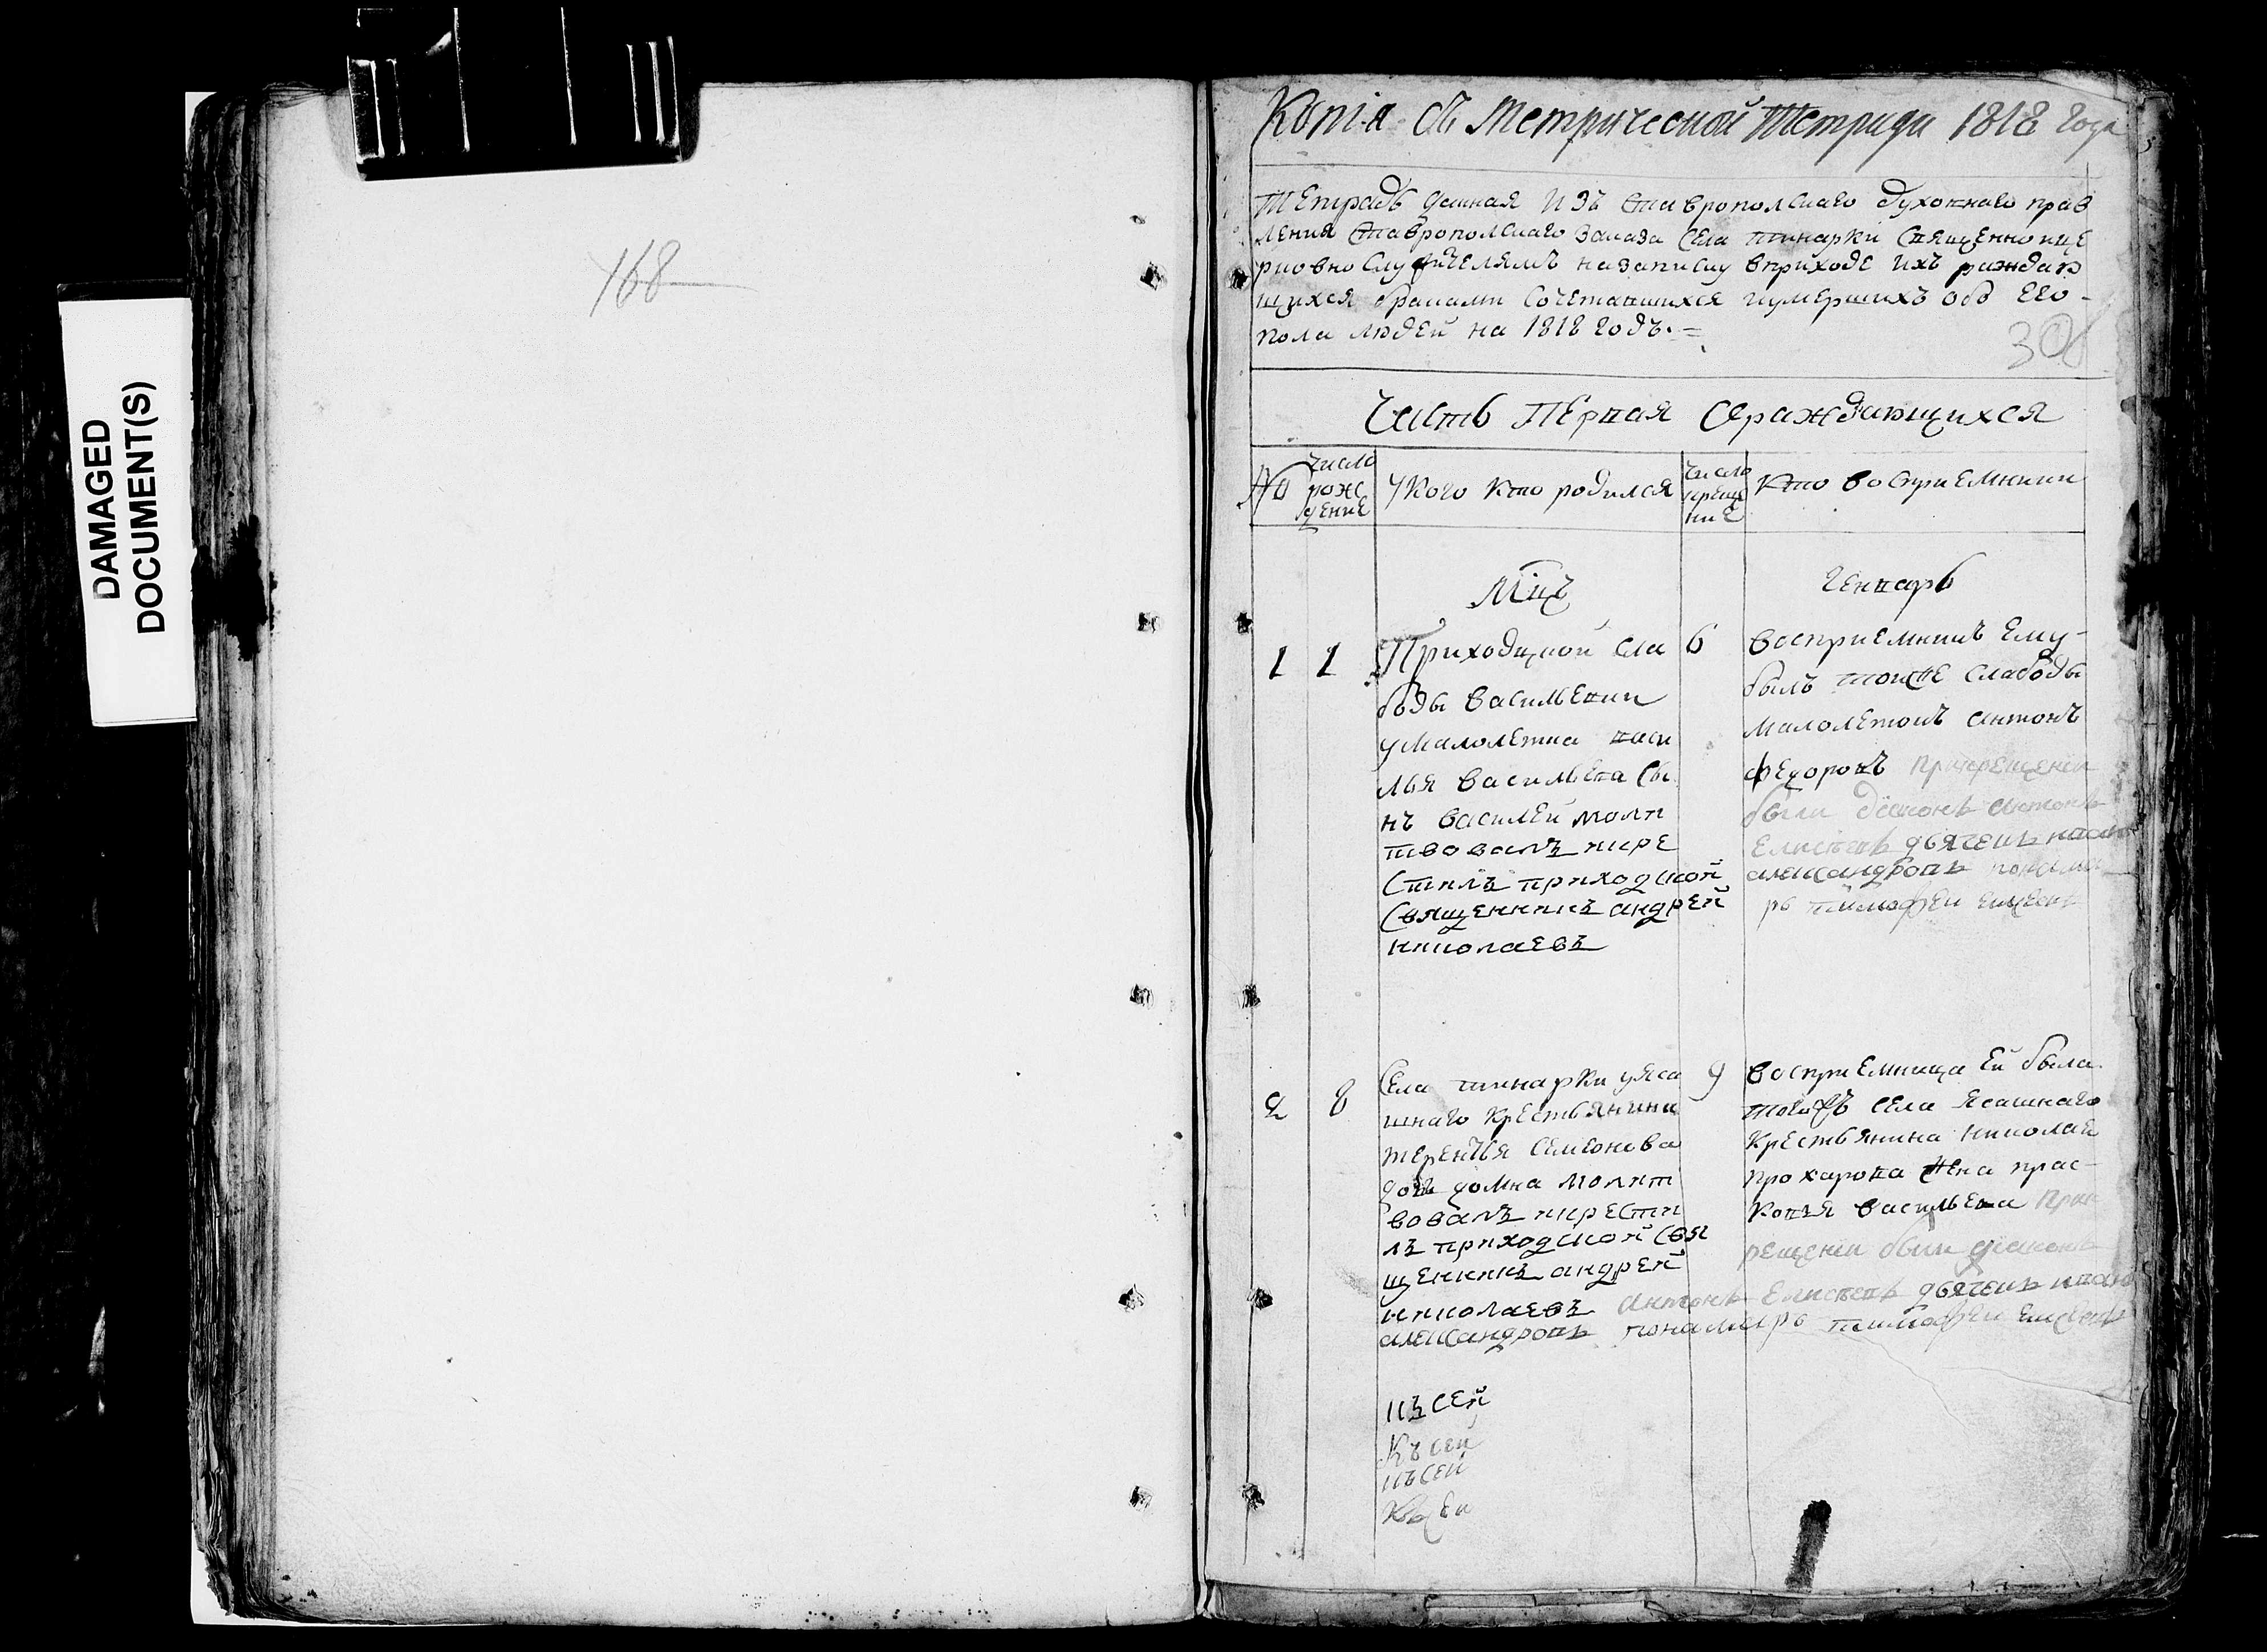 168
DAMAGED
DOCUMENT(S)
Копія съ Метрической Тетради 1818 года
Тетрадь данная изъ Ставрополскаго духовнаго прав
ления Ставрополскаго заказа села тинарки священно и це
рковно служителямъ на записку в приходе ихъ раждаю
щихся браками сочетавшихся и умершихъ обо его
пола людей на 1818 годъ.
308
Часть Первая О раждающихся
№
число рождение
У кого кто родился
число крещение
кто восприемники
Мцъ Генварь
1 1
Приходцкой сла
боды Васильевки
у малолетка васи
лья васильева сы
нъ василей молит
твовалъ и кре
стилъ приходской
священникъ андрей
николаевъ
6
восприемникъ ему
былъ тойже слабоды
малолетокъ антонъ
федоровъ при крещении
были диаконъ антонъ
Елисеевъ дьячекъ иван
александровъ понама
рь тимофей
2 8
Села тинарки у яса
шнаго крестьянина
терентья семеонова
дочь домна молит
вовалъ и крести
лъ приходской свя
щенникъ андрей
николаевъ антонъ Елисеевъ дьячекъ иванъ
александровъ понамарь тимофей
9
восприемница ей была
тогожъ села ясашнаго
крестьянина николая
прохарова жена прас-
ковья васильева при к
рещении были диаконъ
къ сей
къ сей
къ сей
къ сей